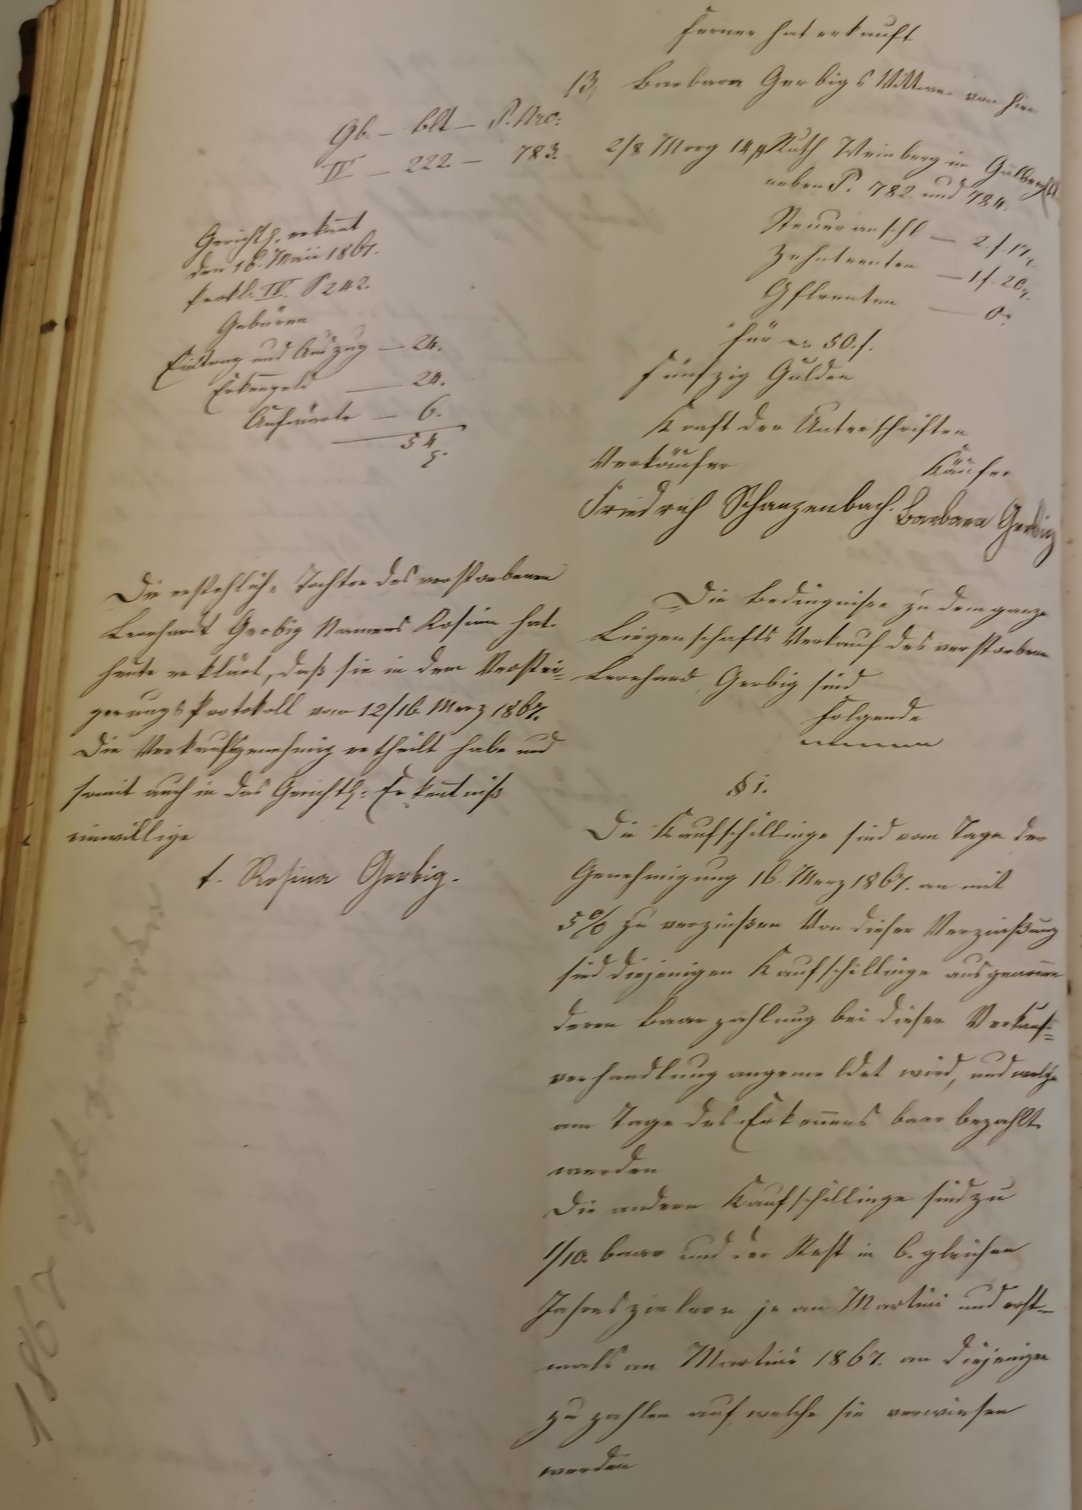 Ferner hat erkauft
13, Barbara Gerbigs Wittwe von hier
2/8 Morg 14 Ruth Weinberg im
neben P. 782 und 784.
Steueranschl — 2 f. 17
Zehntrenten — 1 f. 20
Gflrenten — 0
für 50. f.
fünfzig Gulden
Kraft der Unterschriften
Verkäufer Käufer
Friedrich Schanzenbach. Barbara Gerbig
Gb. — blt — P. Nro:
IV — 222 — 783.
Gerichtl. erkannt
den 16. Maii 1867.
Protl: IV. P 242.
Gebüren
Eintrag und Auszug — 24.
Erkenngeld — 24.
Aufwarte — 6.
54
Die Bedingnisse zu dem ganze
Liegenschafts Verkauf des verstorbene
Leonhard Gerbig sind
folgende
§ 1.
Die Kaufschillinge sind vom Tage der
Genehmigung 16. Merz 1867. an mit
5 % zu verzinßen Von dieser Verzinßung
sind diejenigen Kaufschillinge ausgenommen
deren Baarzahlung bei dieser Verkaufs=
verhandlung angemeldet wird, und welche
am Tage des Erkennens baar bezahlt
werden
Die andern Kaufschillinge sind zu
1/10. baar und der Rest in 6. gleichen
Jahreszielern je an Martini und erst=
mals an Martini 1867. an Diejenigen
zu zahlen auf welche sie verwiesen
werden
Die Tochter des verstorbenen
Leonhard Gerbig Namens Rosina hat
heute erklärt, daß sie in dem Verstei=
gerungs Protokoll vom 12/16 Merz 1867.
Die Verkaufsgenehmig ertheilt habe und
somit auch in das Gerichtl: Erkentniß
einwillige
t. Rosina Gerbig.
1867